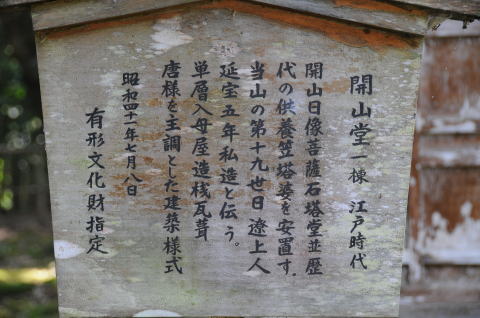 開山堂 一棟 江戸時代
開山日像菩薩石塔堂並歴
代の供養笠塔婆を安置す。
当山の第十九世日遼上人
延宝五年私造と伝う。
単層入母屋造桟瓦葺
唐様を主調とした建築様式
昭和四十一年七月八日
有形文化財指定